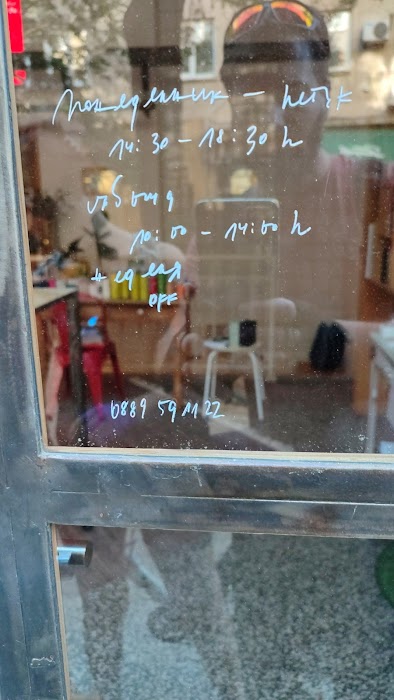 понеделник - петък
14:30 - 18:30 h
събота
10:00 - 14:00 h
неделя
OFF
0889 59 11 22